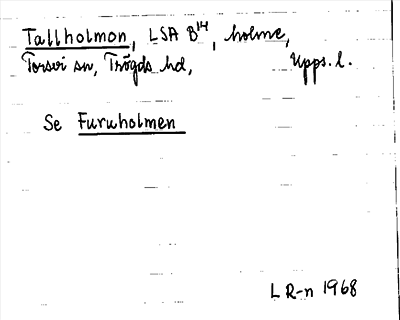 Tallholmon, LSA B14, holme,
Torsvi sn, Trögds hd, Upps. l.
Se Furuholmen
L R-n 1968